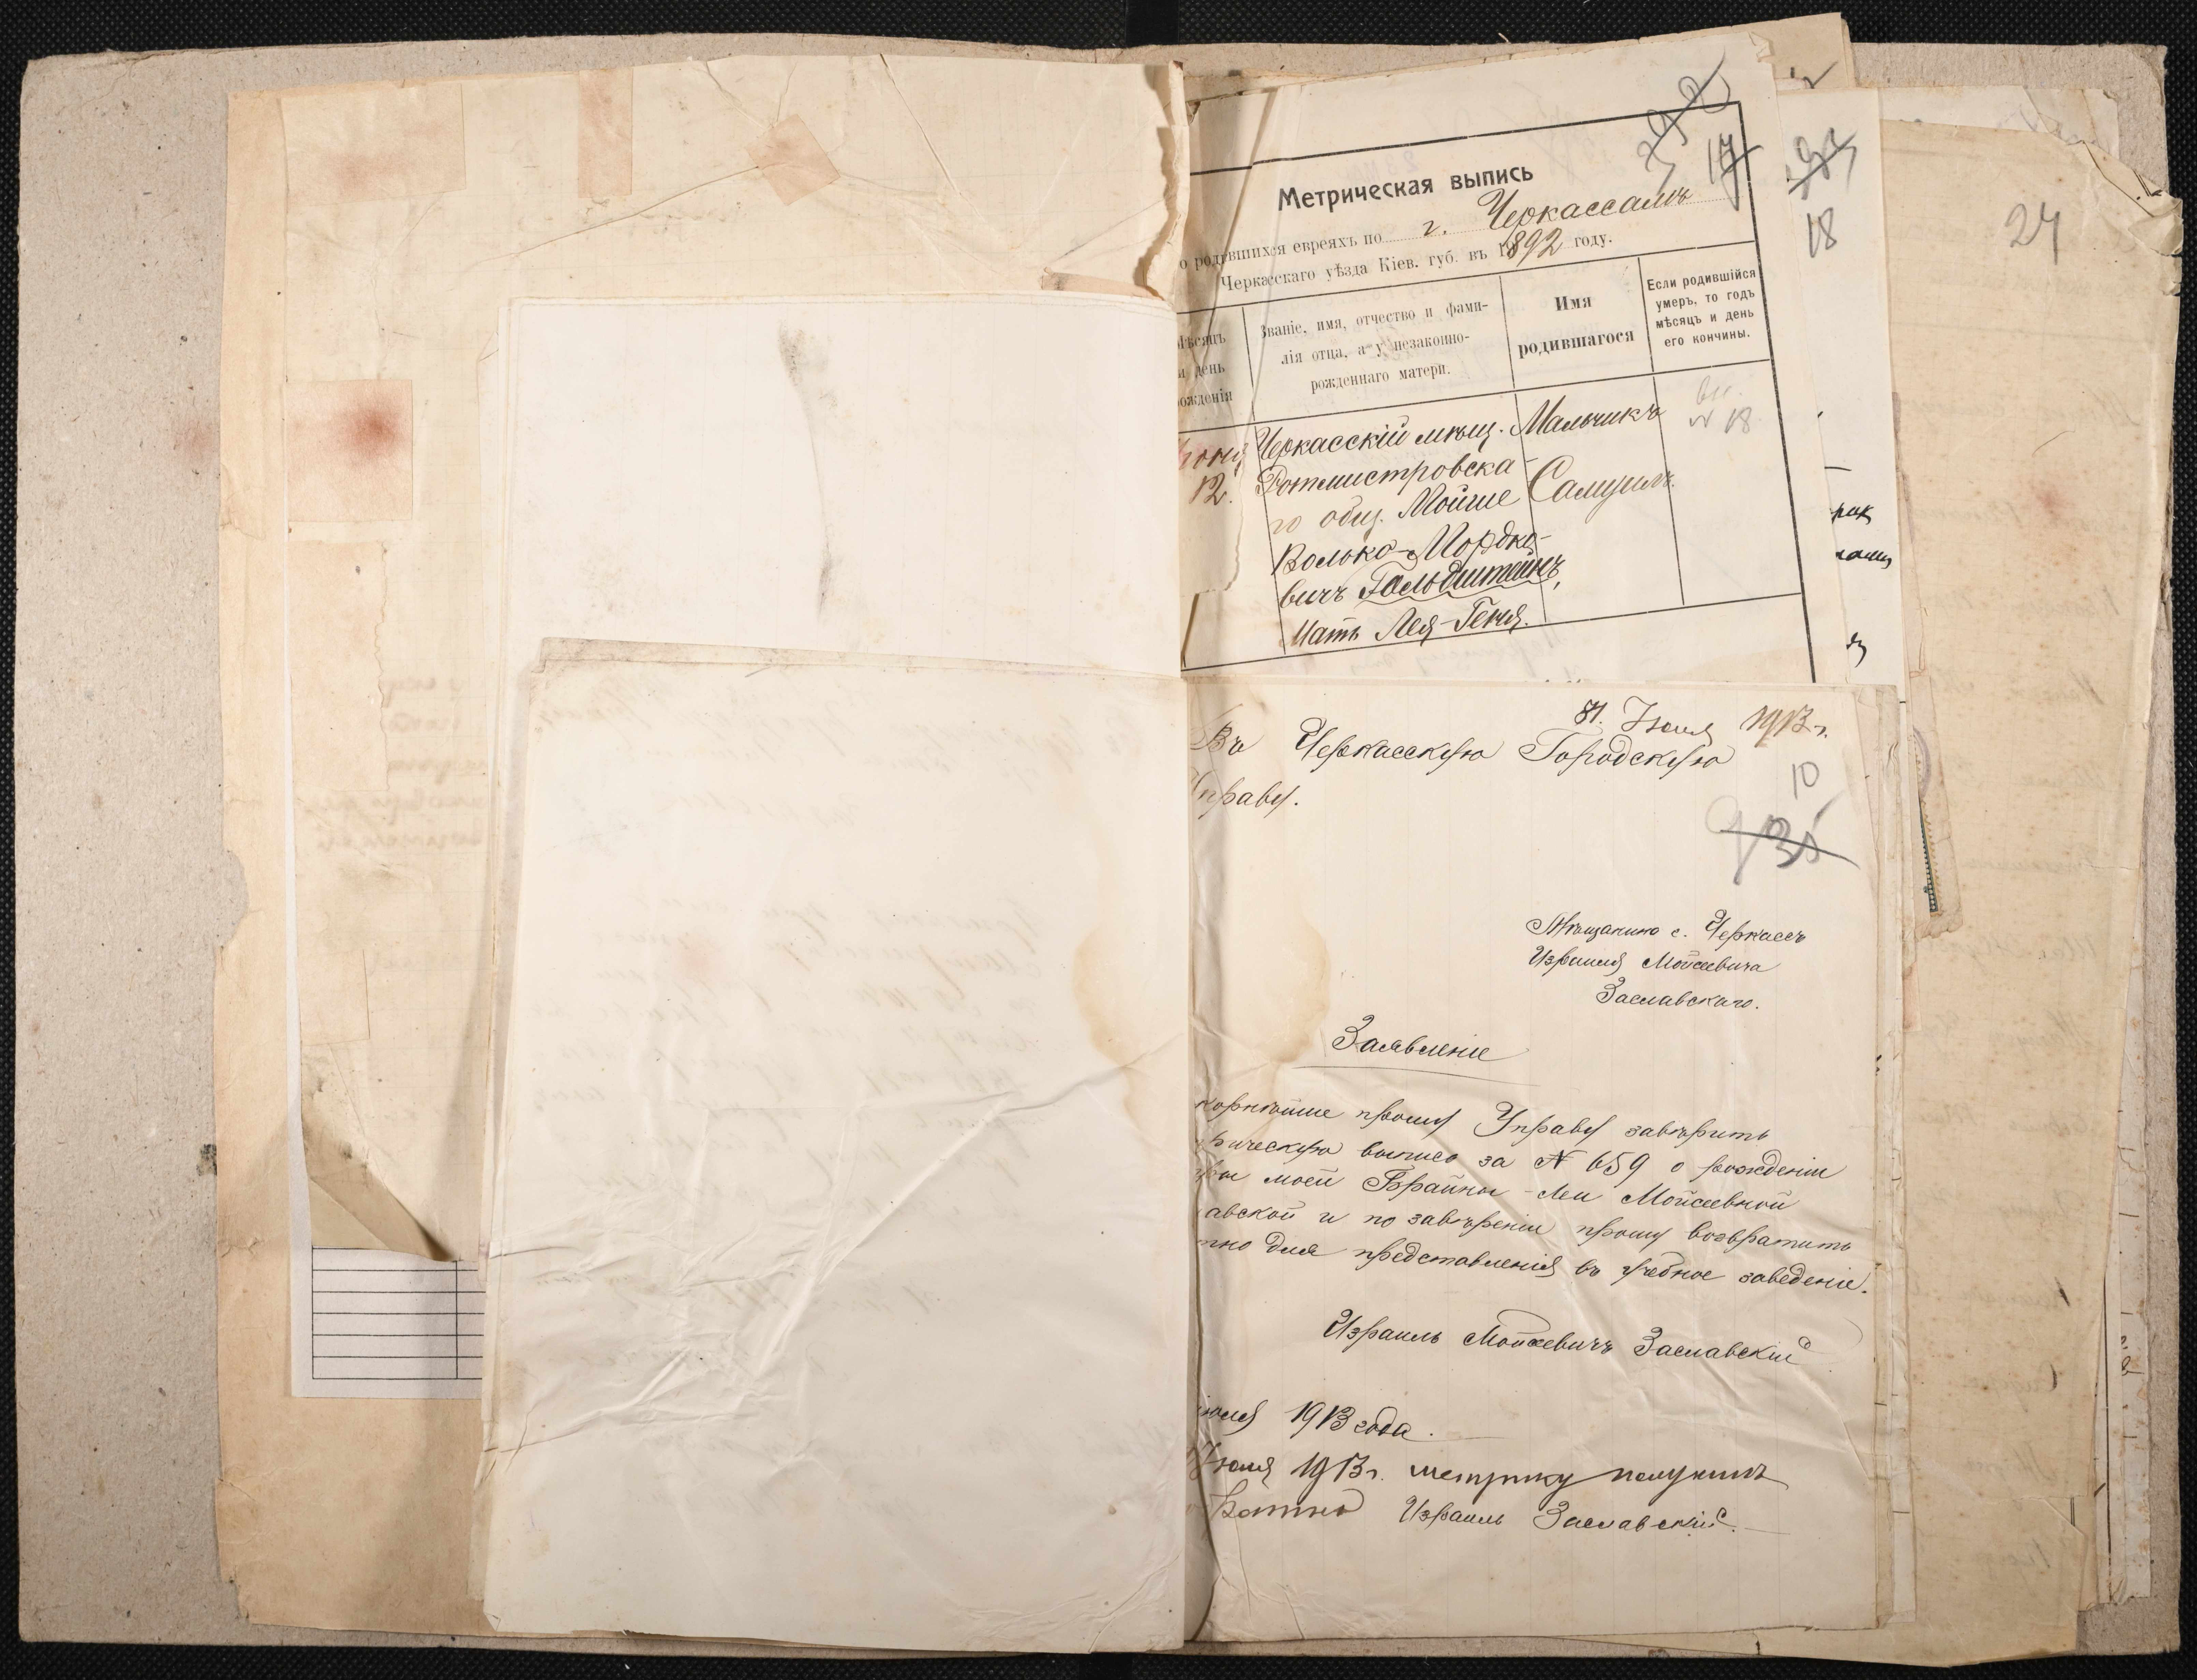 392
17
Метрическая выпись
о родившихся евреяхъ по г. Черкассамъ
Черкасскаго уѣзда Кіев. губ. въ 1892 году.
Мѣсяцъ
и день
рожденія
Званіе, имя, отчество и фами-
лія отца, а у незаконно-
рожденнаго матери.
Имя
родившагося
Если родившійся
умеръ, то годъ
мѣсяцъ и день
его кончины.
12.
Черкасскій мѣщ.
Ротмистровска-
го общ. Мойше
Волько-Мордко-
вичъ Гольдштейнъ,
Мать Лея-Геня.
Мальчикъ
Самуилъ.
18
18
24
Іюля 1913 г.
Въ Черкасскую Городскую
Управу.
10
935
Мѣщанина г. Черкассъ
Израиля Мойсеевича
Заславскаго.
Заявленіе
корнѣйше прошу Управу завѣрить
рическую выпись за № 659 о рожденіи
моей Брайны-Леи Мойсеевной
авской и по завѣреніи прошу возвратить
тно для представленія въ учебное заведеніе.
Израиль Мойсеевичъ Заславскій
іюля 1913 года.
Іюля 1913 г. метрику получилъ
Израиль Заславскій.